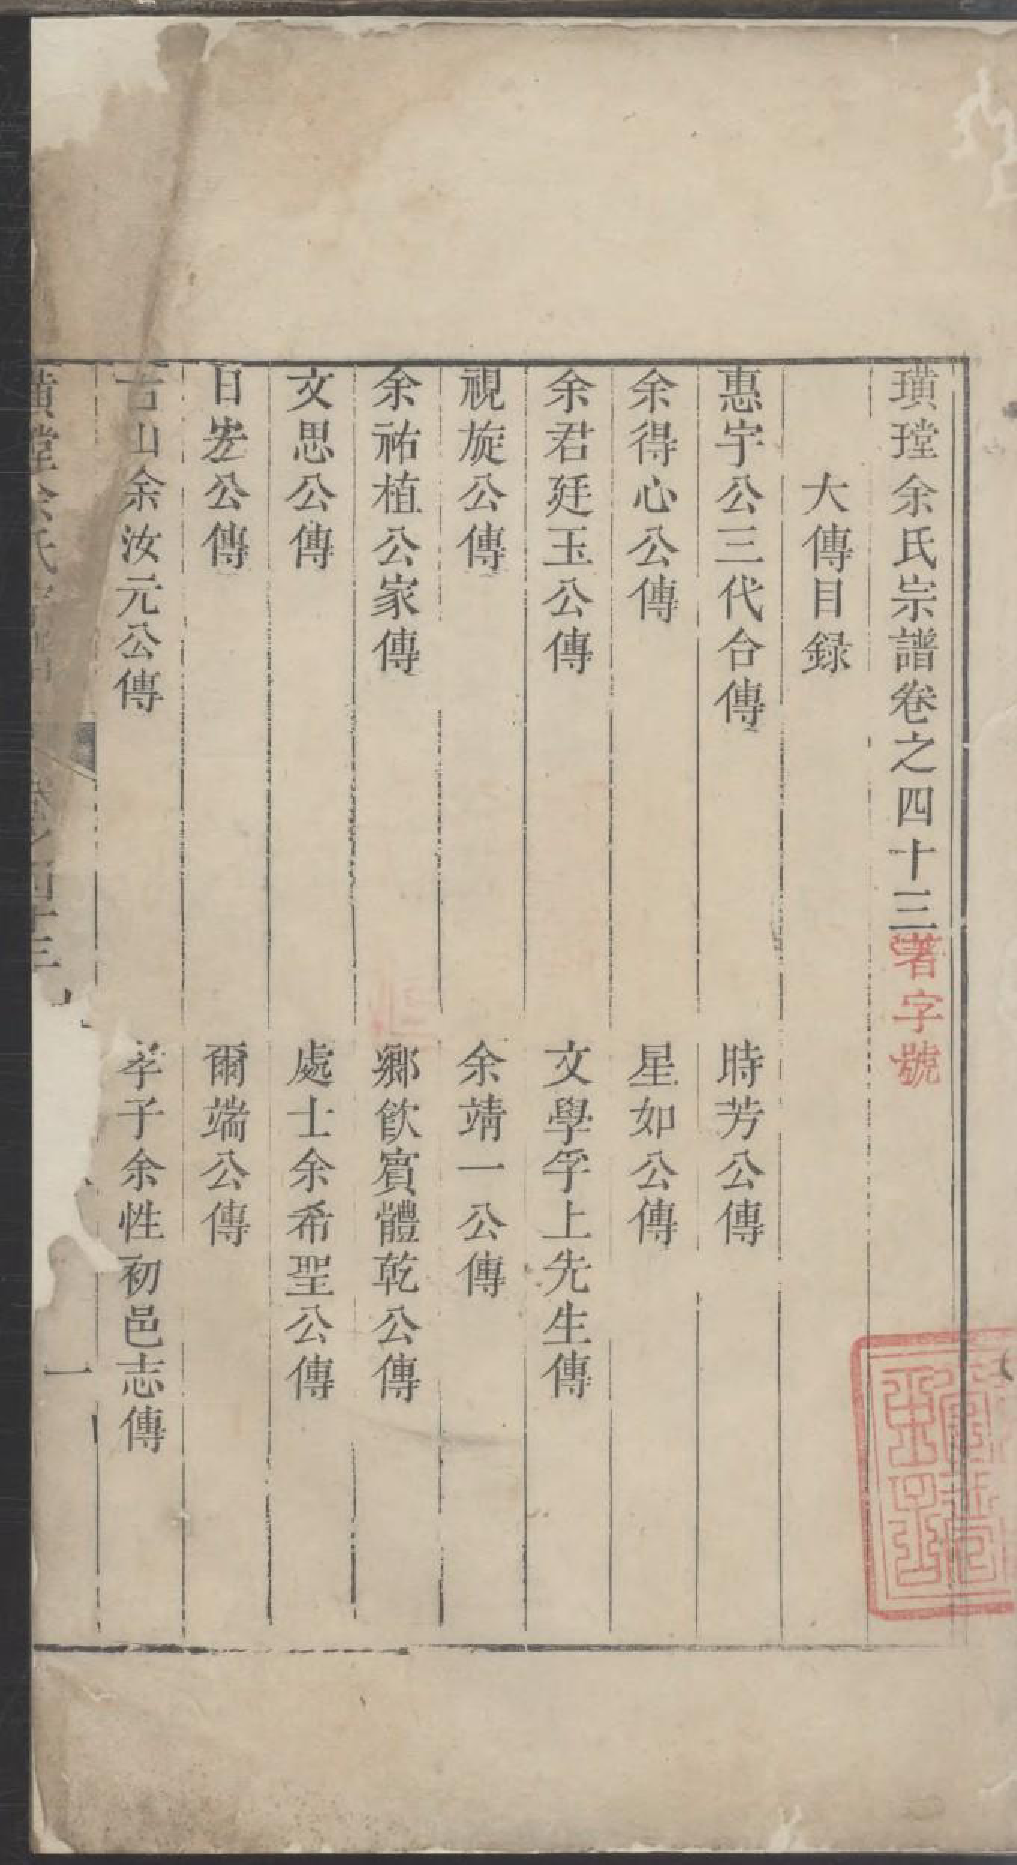 璜瑝余氏宗譜卷之四十三著字號
大傳目録
惠宇公三代合傳 時芳公傳
余得心公傳 星如公傳
余君廷玉公傳 文學孚上先生傳
視旋公傳 余靖一公傳
余祐植公家傳 鄉飲賓體乾公傳
文思公傳 處士余希聖公傳
日宏公傳 爾端公傳
山余汝元公傳 孝子余性初邑志傳
一